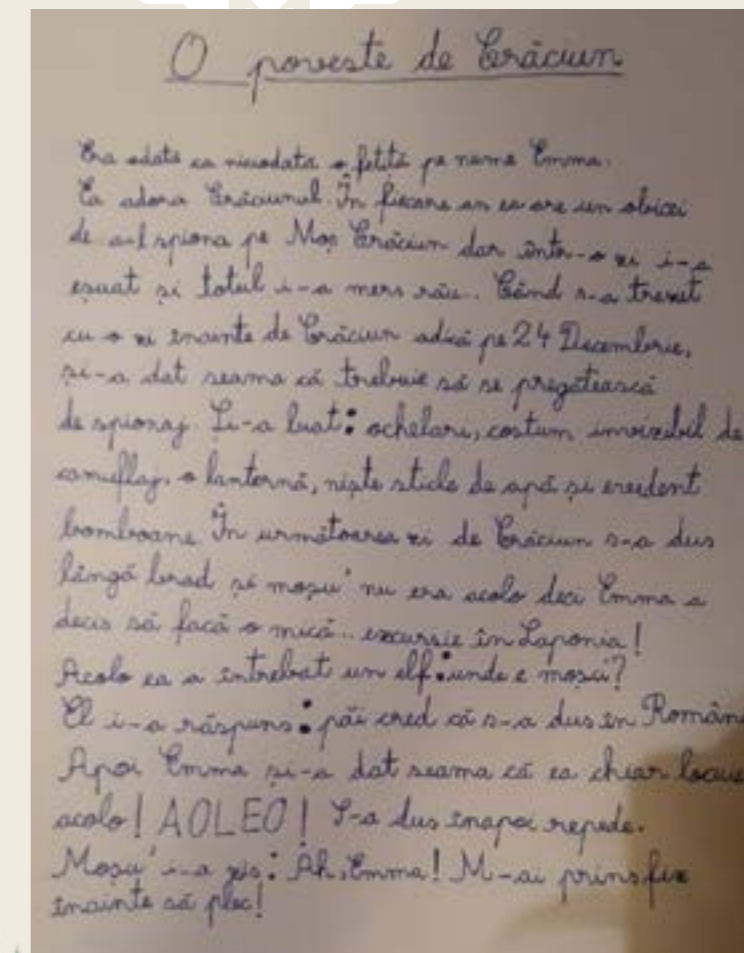 O poveste de Crăciun
Era odata ca niciodata o fetită pe nume Emma.
Ea adora Crăciunul. În fiecare an ea are un obicei
de a-l spiona pe Moș Crăciun dar într-o zi i-a
eșuat și totul i-a mers rău. Când s-a trezit
cu o zi înainte de Crăciun adică pe 24 Decembrie,
și-a dat seama că trebuie să se pregătească
de spionaj. Și-a luat: ochelari, costum invizibil de
camuflaj, o lanternă, niște sticle de apă și evident
bomboane. În următoarea zi de Crăciun s-a dus
lângă brad și moșu' nu era acolo deci Emma a
decis să facă o mică.. excursie în Laponia!
Acolo ea a întrebat un elf: unde e moșu?
El i-a răspuns: păi cred că s-a dus în Român
Apoi Emma și-a dat seama că ea chiar locuie
acolo! AOLEO! S-a dus înapoi repede.
Moșu' i-a zis: Ah, Emma! M-ai prins fix
înainte să plec!